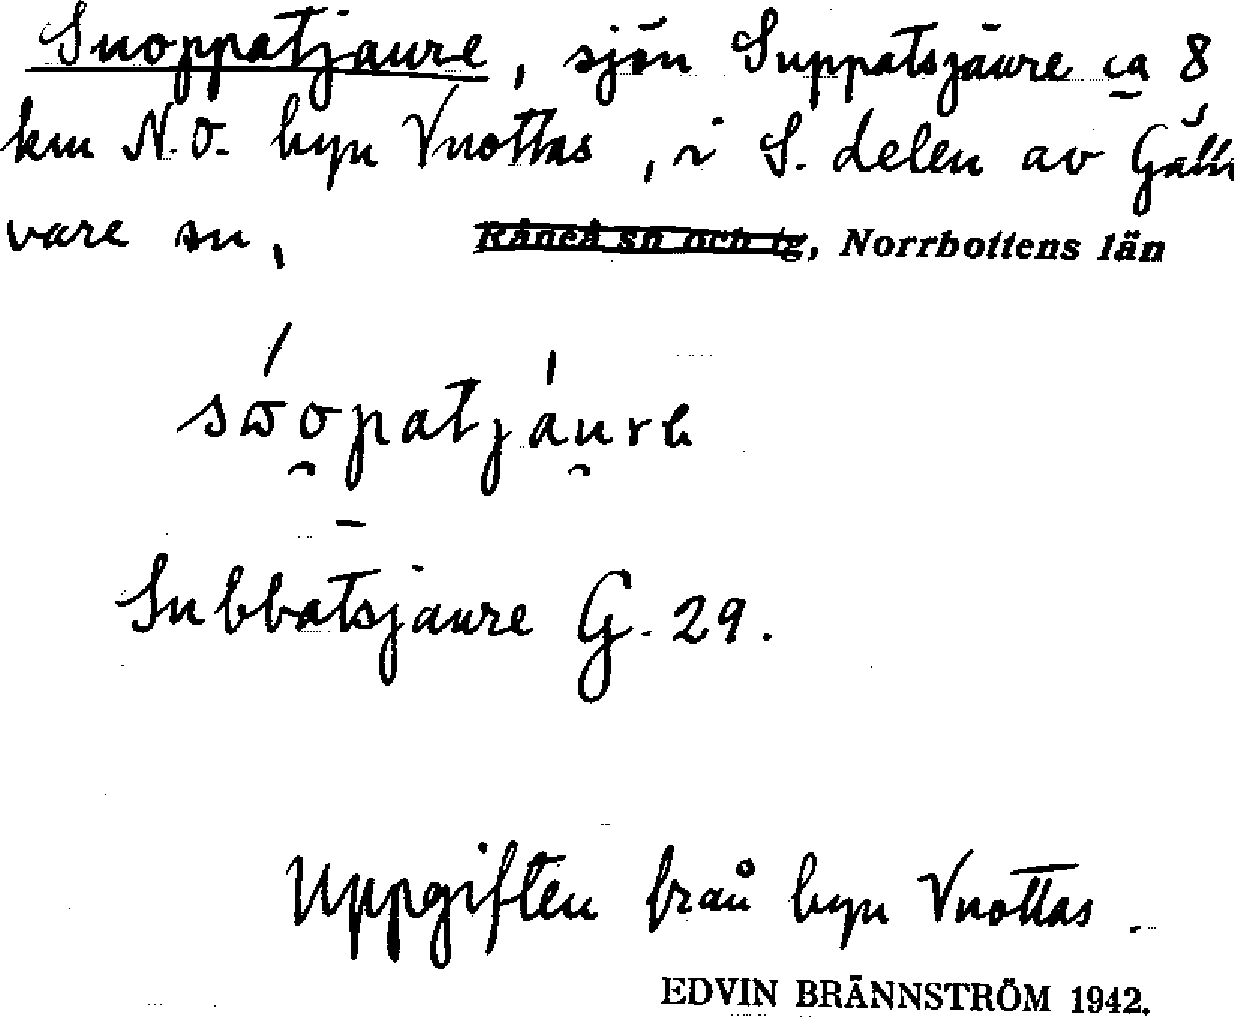 Suoppatjaure, sjön Suppatsjaure ca 8
km N.O. byn Vuottas, i S. delen av Gälli
vare sn, Råneå sn och tg, Norrbottens län
sɷ́o̯patjáu̯rɐ
Subbatsjaure G. 29.
Uppgiften från byn Vuottas.
EDVIN BRÄNNSTRÖM 1942.